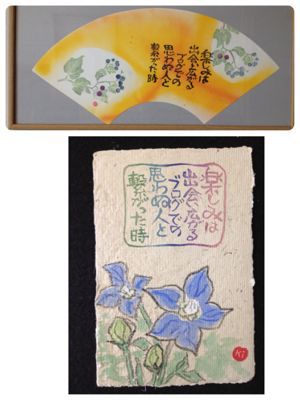 楽しみは
出会い広がる
ブログでの
思わぬ人と
繋がった時
楽しみは
出会い広がる
ブログでの
思わぬ人と
繋がった時
Ki